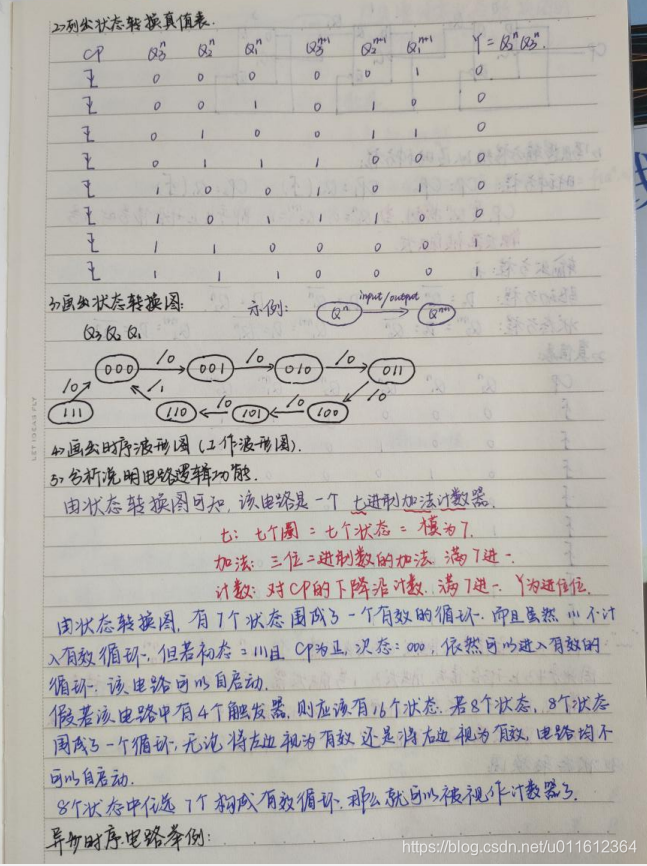 2>列出状态转换真值表.
CP Q₃ⁿ Q₂ⁿ Q₁ⁿ Q₃ⁿ⁺¹ Q₂ⁿ⁺¹ Q₁ⁿ⁺¹ Y=Q₃ⁿQ₂ⁿ.
0 0 0 0 0 1 0
0 0 1 0 1 0 0
0 1 0 0 1 1 0
0 1 1 1 0 0 0
1 0 0 1 0 1 0
1 0 1 1 1 0 0
1 1 0 0 0 0 1
1 1 1 0 0 0 1
3>画出状态转换图:
示例: Qⁿ input/output Qⁿ⁺¹
Q₃ Q₂ Q₁
000 /0 001 /0 010 /0 011
/0 /1 /0
111 110 /0 101 /0 100
4>画出时序波形图(工作波形图).
5>分析说明电路逻辑功能.
由状态转换图可知,该电路是一个 七进制加法计数器.
七: 七个圈=七个状态=模为7.
加法: 三位二进制数的加法 满7进一.
计数: 对CP的下降沿计数. 满7进一. Y为进位位.
由状态转换图, 有7个状态围成了一个有效的循环. 而且虽然 111不计
入有效循环, 但若初态=111且 CP为正, 次态:000, 依然可以进入有效的
循环. 该电路可以自启动.
假若该电路中有4个触发器, 则应该有16个状态. 若8个状态, 8个状态
围成了一个循环, 无论将左边视为有效 还是将右边视为有效, 电路均不
可以自启动.
8个状态中任选7个构成有效循环. 那么就可以被视作计数器了.
异步时序电路举例:
LET IDEAS FLY
https://blog.csdn.net/u011612364